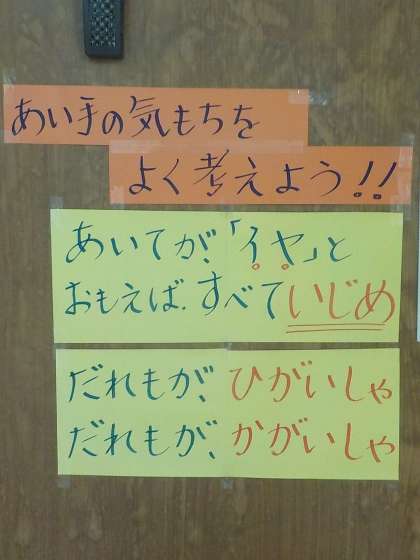 あい手の気もちを
よく考えよう!!
あいてが、「イヤ」と
おもえば、すべていじめ
だれもが、ひがいしゃ
だれもが、かがいしゃ